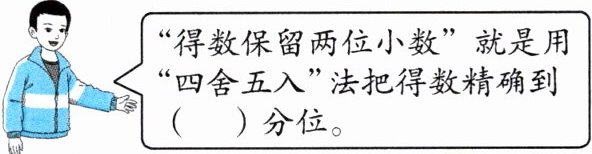 “得数保留两位小数”就是用
“四舍五入”法把得数精确到
(    )分位。